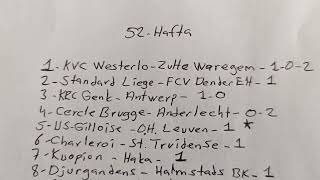 52-Hafta
1-KVC Westerlo-Zulte Waregem-1-0-2
2-Standard Liege-FCV Dender EH-1
3-KRC Genk-Antwerp-1-0
4-Cercle Brugge-Anderlecht-0-2
5-US-Gilloise-OH. Leuven-1 *
6-Charleroi-St. Truidense-1
7-Kuopion-Haka-1
8-Djurgandens-Halmstads BK-1